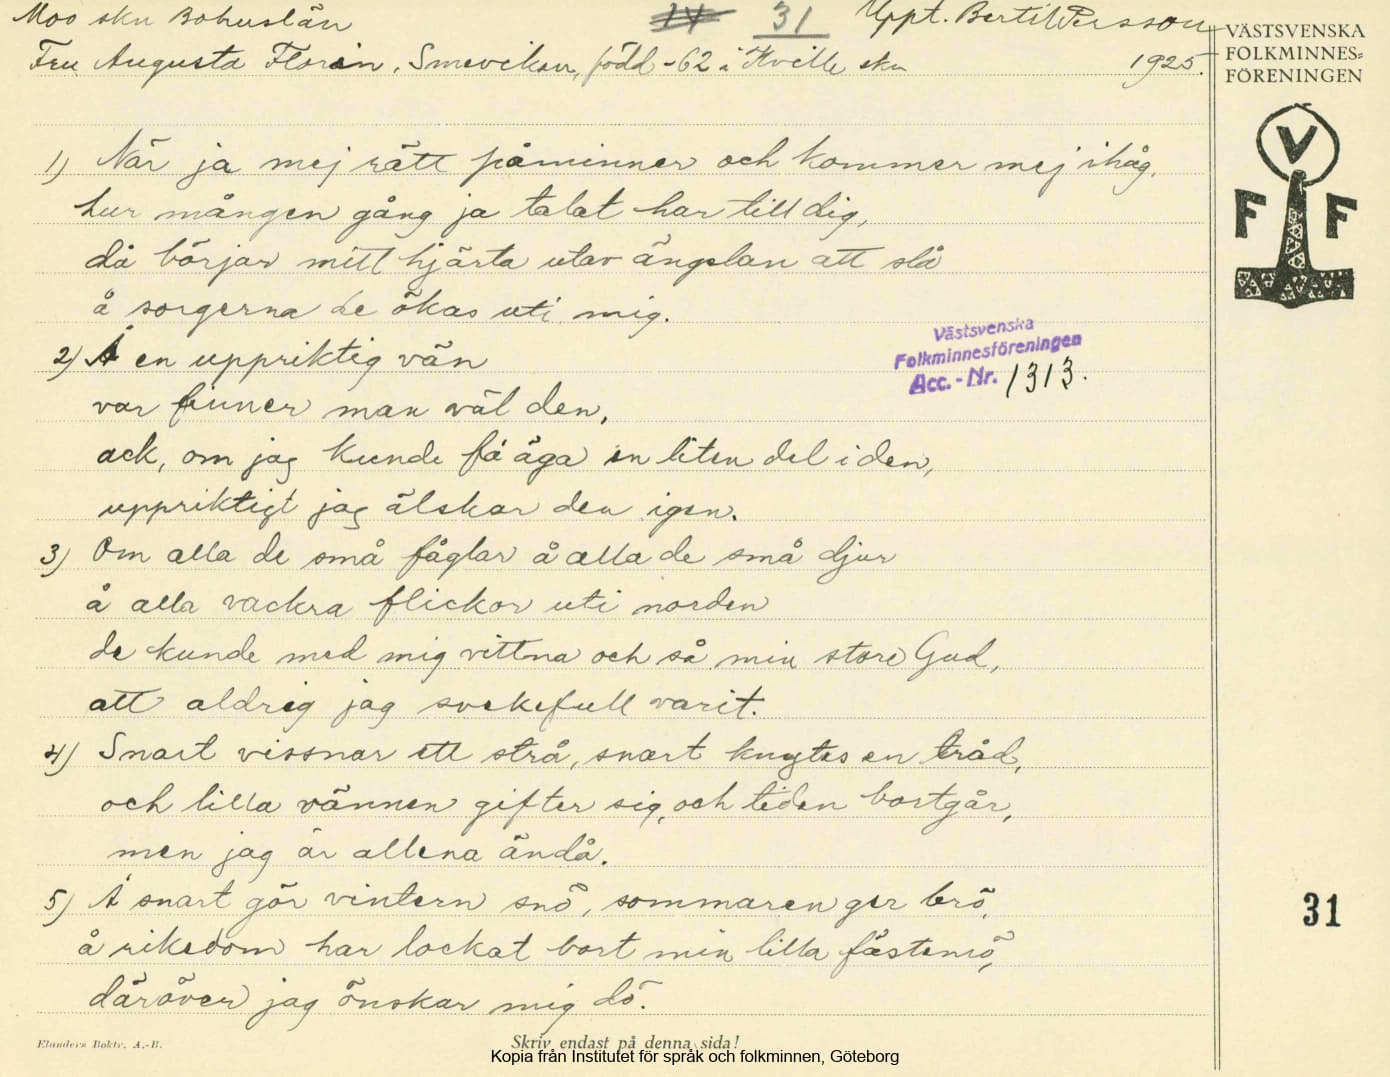 Moo skn Bohuslän
31
Uppt. Bertil Persson
Fru Augusta Florin, Smeviken, född -62 i Kville skn
1925.
VÄSTSVENSKA
FOLKMINNES=
FÖRENINGEN
V
F F
1) När ja mej rätt påminner och kommer mej ihåg,
hur mången gång ja talat har till dig,
då börjar mitt hjärta utav ängslan att slå
å sorgerna de ökas uti mig.
2) Å en uppriktig vän
var finner man väl den,
ack, om jag kunde få äga en liten del i den,
uppriktigt jag älskar den igen.
Västsvenska
Folkminnesföreningen
Acc.-Nr. 1313.
3) Om alla de små fåglar å alla de små djur
å alla vackra flickor uti norden
de kunde med mig vittna och så min store Gud,
att aldrig jag svekefull varit.
4) Snart vissnar ett strå, snart knytes en tråd,
och lilla vännen gifter sig, och tiden bortgår,
men jag är allena ändå.
5) Å snart gör vintern snö, sommaren ger brö,
å rikedom har lockat bort min lilla fästemö,
däröver jag önskar mig dö.
31
Elanders Boktr. A.-B.
Skriv endast på denna sida!
Kopia från Institutet för språk och folkminnen, Göteborg